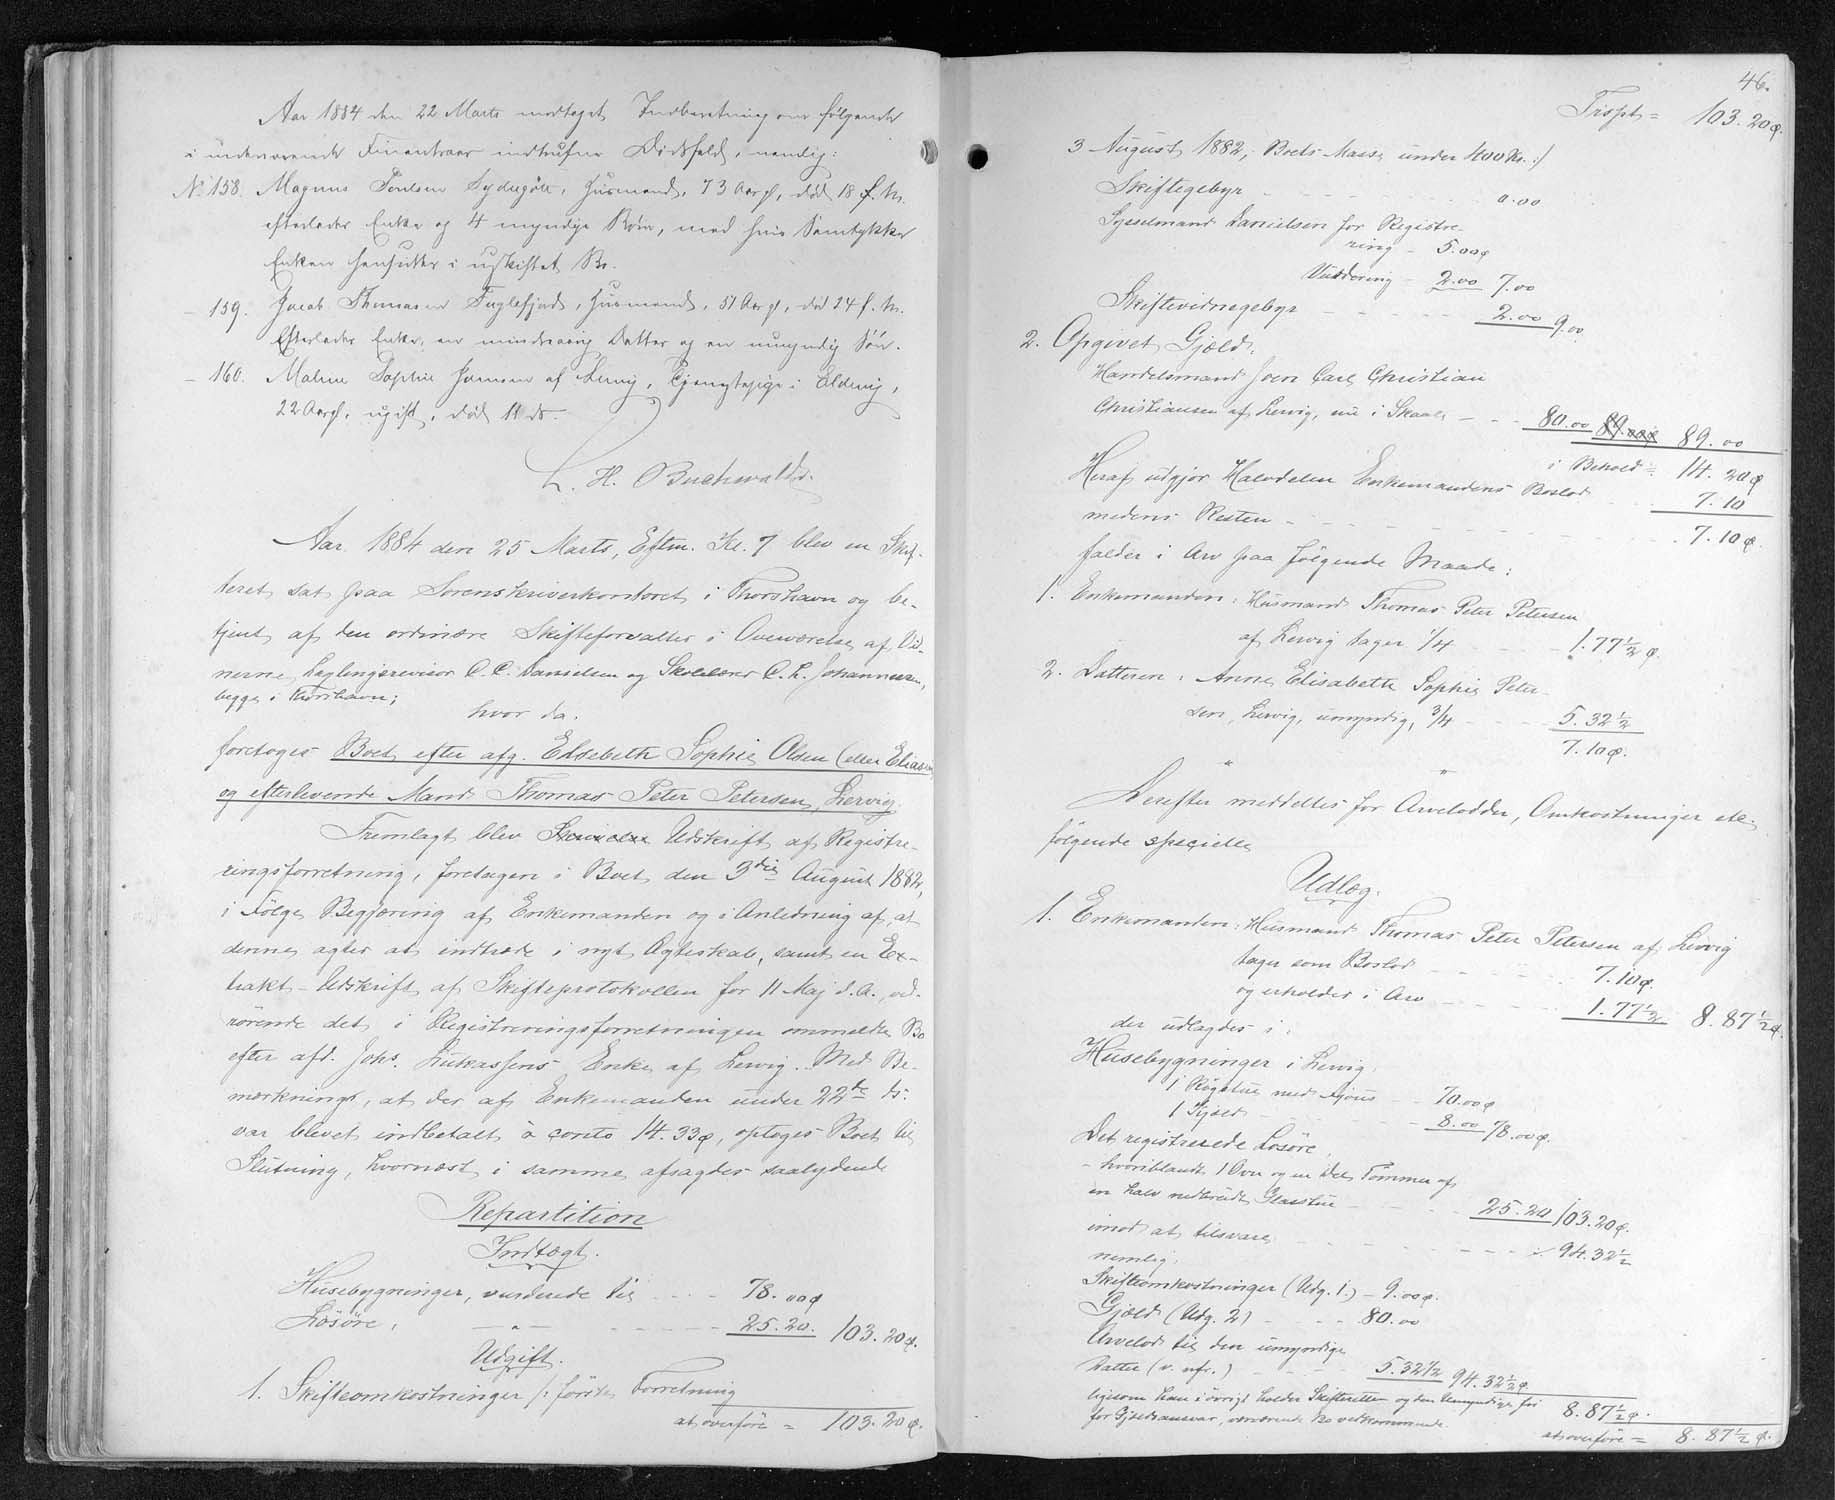 Aar 1884 den 22 Marts modtaget Indberetning om følgende
i indeværende Finantsaar indtrufne Dødsfald, nemlig:
No. 158. Magnus Poulsen Sydregöte, Husmand, 73 Aar gl., død 18 f. M.
efterlader Enke og 4 myndige Börn, med hvis Samtykke
Enken hensidder i uskiftet Bo.
- 159. Jacob Thomasen Fuglefjord, Husmand, 51 Aar gl., död 24 f. M.
Efterlader Enke, en mindreaarig Datter og en umyndig Sön.
- 160. Malene Sophie Hansen af Lervig, Tjenestepige i Eldevig,
22 Aar gl., ugift, död 11 ds.
L. H. Buchwaldt.
Aar 1884 den 25 Marts, Eftm. Kl. 7 blev en Skif-
teret sat paa Sorenskriverkontoret i Thorshavn og be-
tjent af den ordinære Skifteforvalter i Overværelse af Vid-
nerne, Laglingsrevisor C. C. Danielsen og Skolelærer C. L. Johannesen,
begge i Thorshavn;
hvor da:
foretoges Boet efter afg. Elsebeth Sophie Olsen (eller Eliasen)
og efterlevende Mand Thomas Peter Petersen, Lervig.
Fremlagt blev Udskrift af Registre-
ringsforretning, foretagen i Boet den 3die August 1882,
i Følge Begjæring af Enkemanden og i Anledning af, at
denne agter at indtræde i nyt Ægteskab, samt en Ex-
trakt-Udskrift af Skifteprotokollen for 11 Maj d. A., ved-
rörende det i Registreringsforretningen ommeldte Bo
efter afd. Johs. Lukassens Enke af Lervig. Med Be-
mærkning, at der af Enkemanden under 22de ds.
var blevet indbetalt à conto 14. 33 ø, optoges Boet til
Slutning, hvornæst i samme afsagdes saalydende
Repartition
Indtægt.
Husebygninger, vurderede til - - - 78. 00 ø
Lösöre, - " - - - - - 25. 20. 103. 20 ø.
Udgift.
1. Skifteomkostninger /: förste Forretning
at overføre = 103. 20 ø.
46.
Trspt = 103. 20 ø.
3 August 1882; Boets Masse under 400 Kr. :/
Skiftegebyr - - - - - 0.00
Sysselmand Danielsen for Registre-
ring - 5.00 ø
Vurdering - 2.00 7.00
Skiftevidnegebyr - - - - - 2.00 9.00
2. Opgivet Gjæld:
Handelsmand Joen Carl Christian
Christiansen af Lervig, nu i Skaale - - - 80.00 89.00 ø 89. 00
i Behold = 14. 20 ø
Heraf udgjör Halvdelen Enkemandens Boslod - - 7. 10
medens Resten - - - - - - 7. 10 ø.
falder i Arv paa følgende Maade:
1. Enkemanden: Husmand Thomas Peter Petersen
af Lervig tager 1/4 - - - 1. 77 1/2 ø.
2. Datteren: Anne Elisabeth Sophie Peter-
sen, Lervig, umyndig, 3/4 - - - 5. 32 1/2
7. 10 ø.
" "
Derefter meddeltes for Arvelodder, Omkostninger etc.
følgende specielle
Udlæg.
1. Enkemanden: Husmand Thomas Peter Petersen af Lervig
tager som Boslod - - - - 7. 10 ø.
og erholder i Arv - - - - 1. 77 1/2 8. 87 1/2 ø.
der udlagdes i:
Husebygninger i Lervig:
1 Rögstue med - - 70.00 ø
1 Hjæld - - - 8. 00 78. 00 ø.
Det registrerede Lösöre,
- hvoriblandt 1 Ovn og en Del Tømmer af
en halv nedbrudt Glasstue - - - - 25. 20 103. 20 ø.
imod at tilsvare - - - - - - ./. 94. 32 1/2
nemlig:
Skifteomkostninger (Udg. 1.) - 9. 00 ø.
Gjæld (Udg. 2) - - - 80. 00
Arvelod til den umyndige
Datter (v. nfr.) - - - 5. 32 1/2 94. 32 1/2 ø.
ligesom han i övrigt holder Skifteretten og den Umyndige fri
for Gjældsansvar, nærværende Bo vedkommende. 8. 87 1/2 ø.
at overføre = 8. 87 1/2 ø.